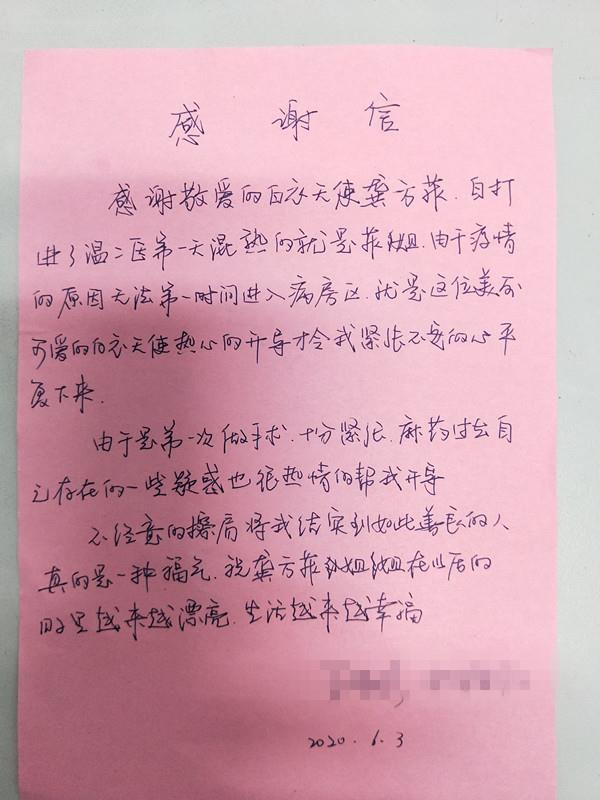 感谢信
感谢敬爱的白衣天使龚方菲.自打
进了温二医第一天混熟的就是菲姐.由于疫情
的原因无法第一时间进入病房区.就是这位美而
可爱的白衣天使热心的开导才令我紧张不安的心平
复下来.
由于是第一次做手术.十分紧张.麻药过后自
己存在的一些疑惑也很热情的帮我开导
不经意的擦肩将我结实到如此善良的人
真的是一种福气.祝龚方菲姐姐在以后的
日子里越来越漂亮.生活越来越幸福
2020.6.3